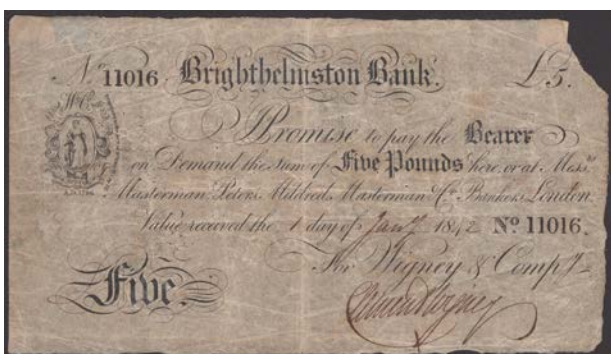 No. 11016 Brighthelmston Bank. £5.
W Co
Promise to pay the Bearer
on Demand the Sum of Five Pounds here or at Messrs
Masterman, Peters, Mildred, Masterman & Co. Bankers, London.
Value received the 1 day of Jany 1842 No 11016.
For Wigney & Compy
Five.